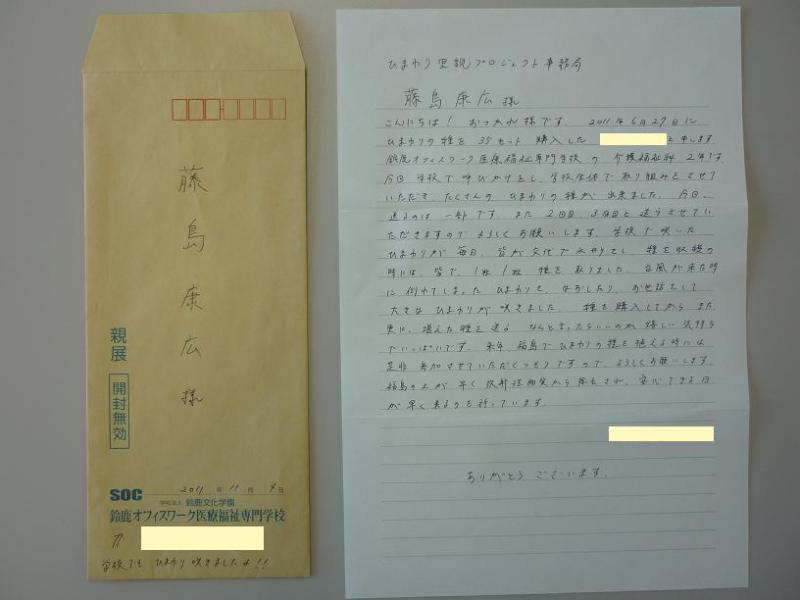 藤島康広様
親展
開封無効
2011年11月9日
SOC
学校法人 鈴鹿文化学園
鈴鹿オフィスワーク医療福祉専門学校
学校でも ひまわり咲きましたよ!!
ひまわり里親プロジェクト事務局
藤島康広様
こんにちは! おつかれ様です。2011年6月29日に
ひまわりの種を35セット購入した と申します
鈴鹿オフィスワーク医療福祉専門学校の介護福祉科2年です。
今回学校で呼びかけをし、学校全体で取り組みをさせて
いただき、たくさんのひまわりの種が出来ました。今回、
送るのは一部です。また2回目、3回目と送らせてい
ただきますのでよろしくお願いします。学校で咲いた
ひまわりが毎日、皆が交代で水やりをし、種を収穫の
時には、皆で、1粒1粒種を取りました。台風が来た時
に倒れてしまったひまわりを、なおしたり、お世話をして
大きなひまわりが咲きました。種を購入してからまた
実に、植えた種を送る なんと言ったらいいのか嬉しい気持ち
でいっぱいです。来年、福島でひまわりの種を植える時には
是非参加させていただくつもりですので、よろしくお願いします。
福島の土が早く放射性物質から除去され、安心できる日
が早く来るのを祈っています。
ありがとうございます。